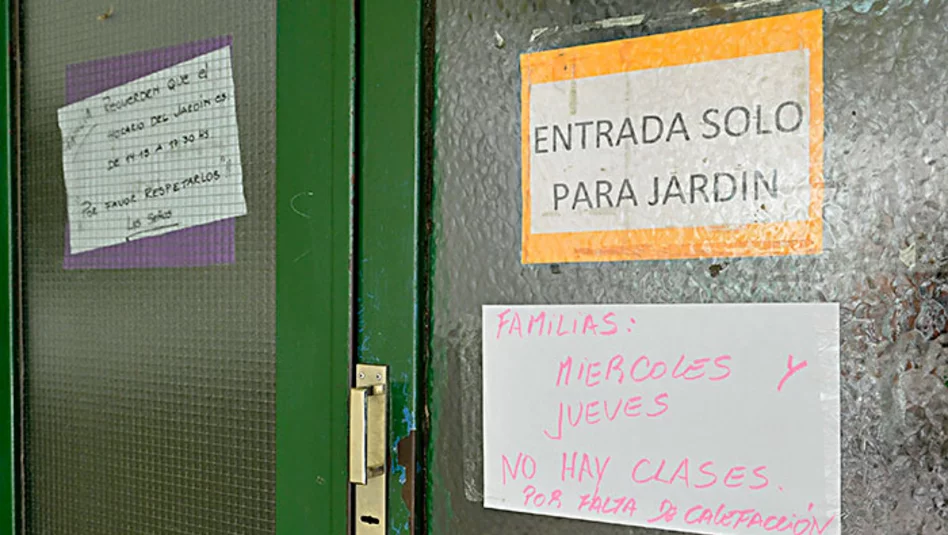 RECUERDEN QUE El
HORARIO DEL JARDÍN ES
DE 14.15 A 17.30 HS
POR FAVOR RESPETARLOS
Las Seños
ENTRADA SOLO
PARA JARDIN
FAMILIAS:
MIERCOLES Y
JUEVES
NO HAY CLASES.
POR FALTA DE CALEFACCIÓN